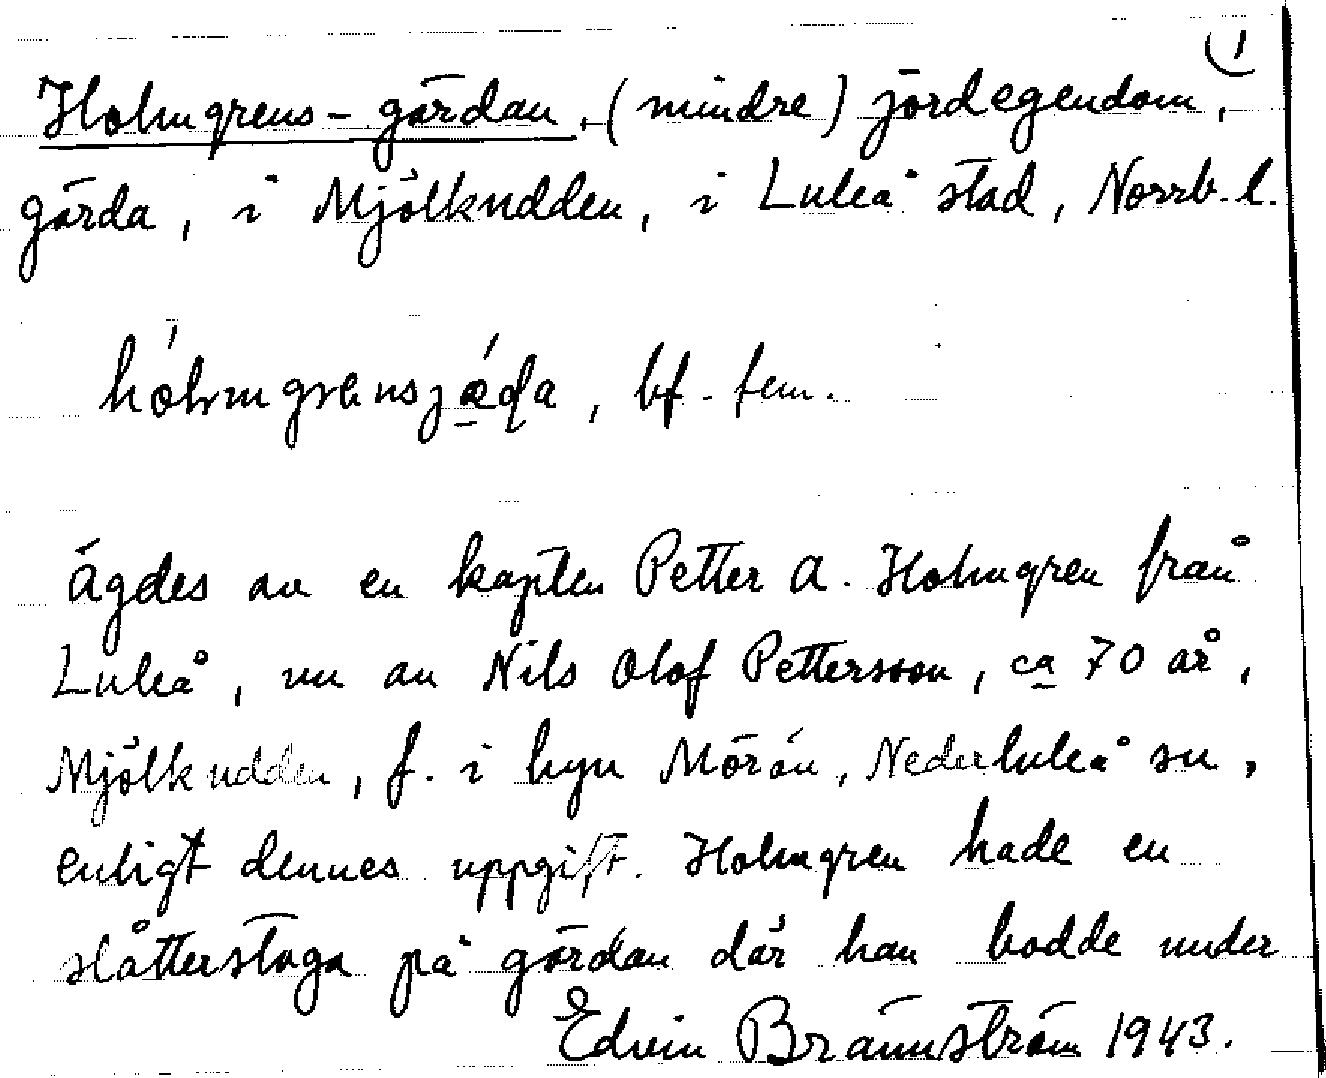 1
Holmgrens-gärdan, (mindre) jordegendom,
gärda, i Mjölkudden, i Luleå stad, Norrb. l.
bf. fem.
Ägdes av en kapten Petter A. Holmgren från
Luleå, nu av Nils Olof Pettersson, ca 70 år,
Mjölkudden, f. i byn Mörön, Nederluleå sn,
enligt dennes uppgift. Holmgren hade en
slåtterstoga på gärdan där han bodde under
Edvin Brännström 1943.